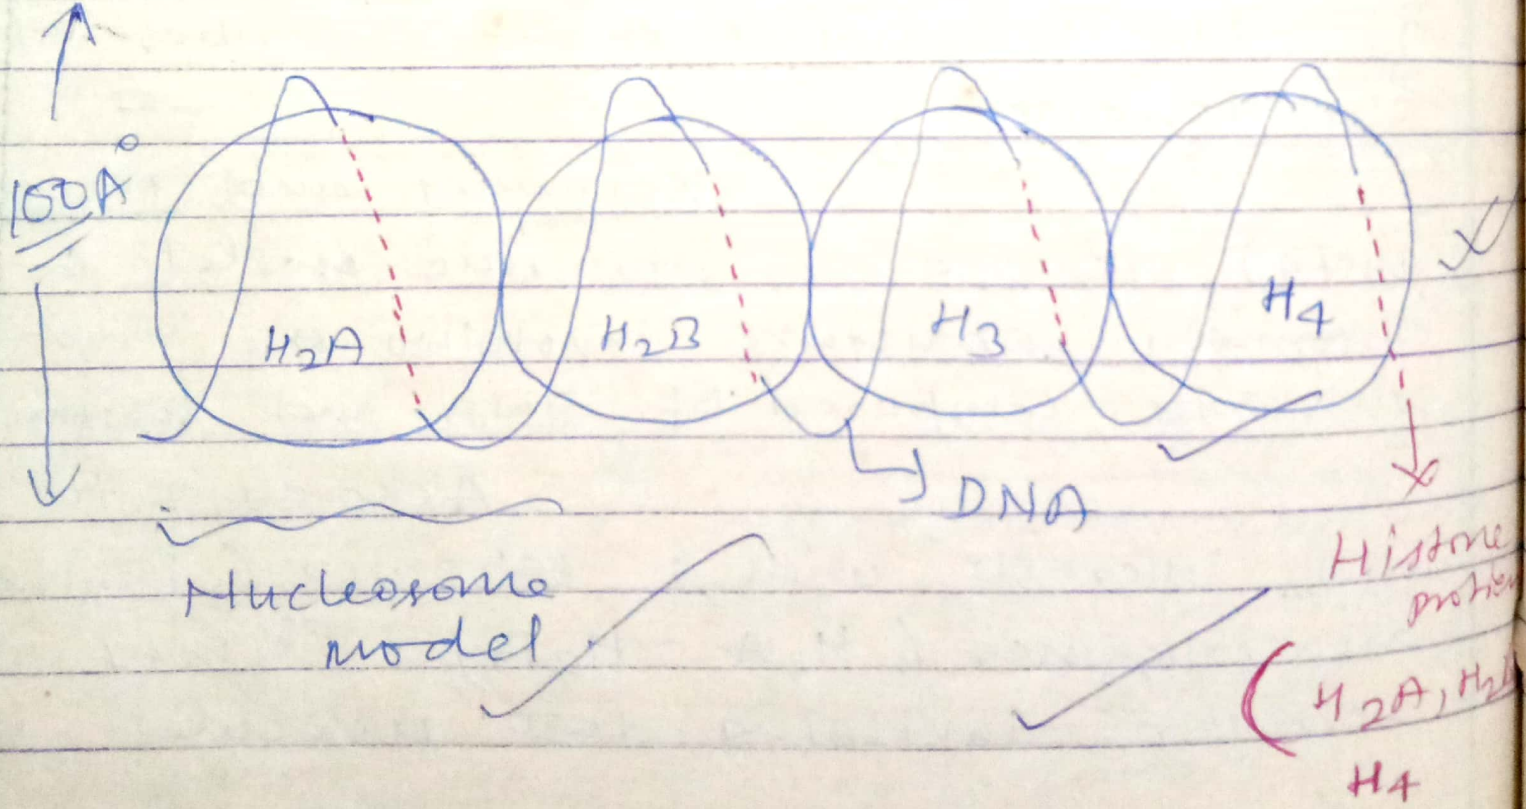 100A°
H2A
H2B
H3
H4
DNA
Nucleosome
model
Histone
protien
( H2A, H2B
H4